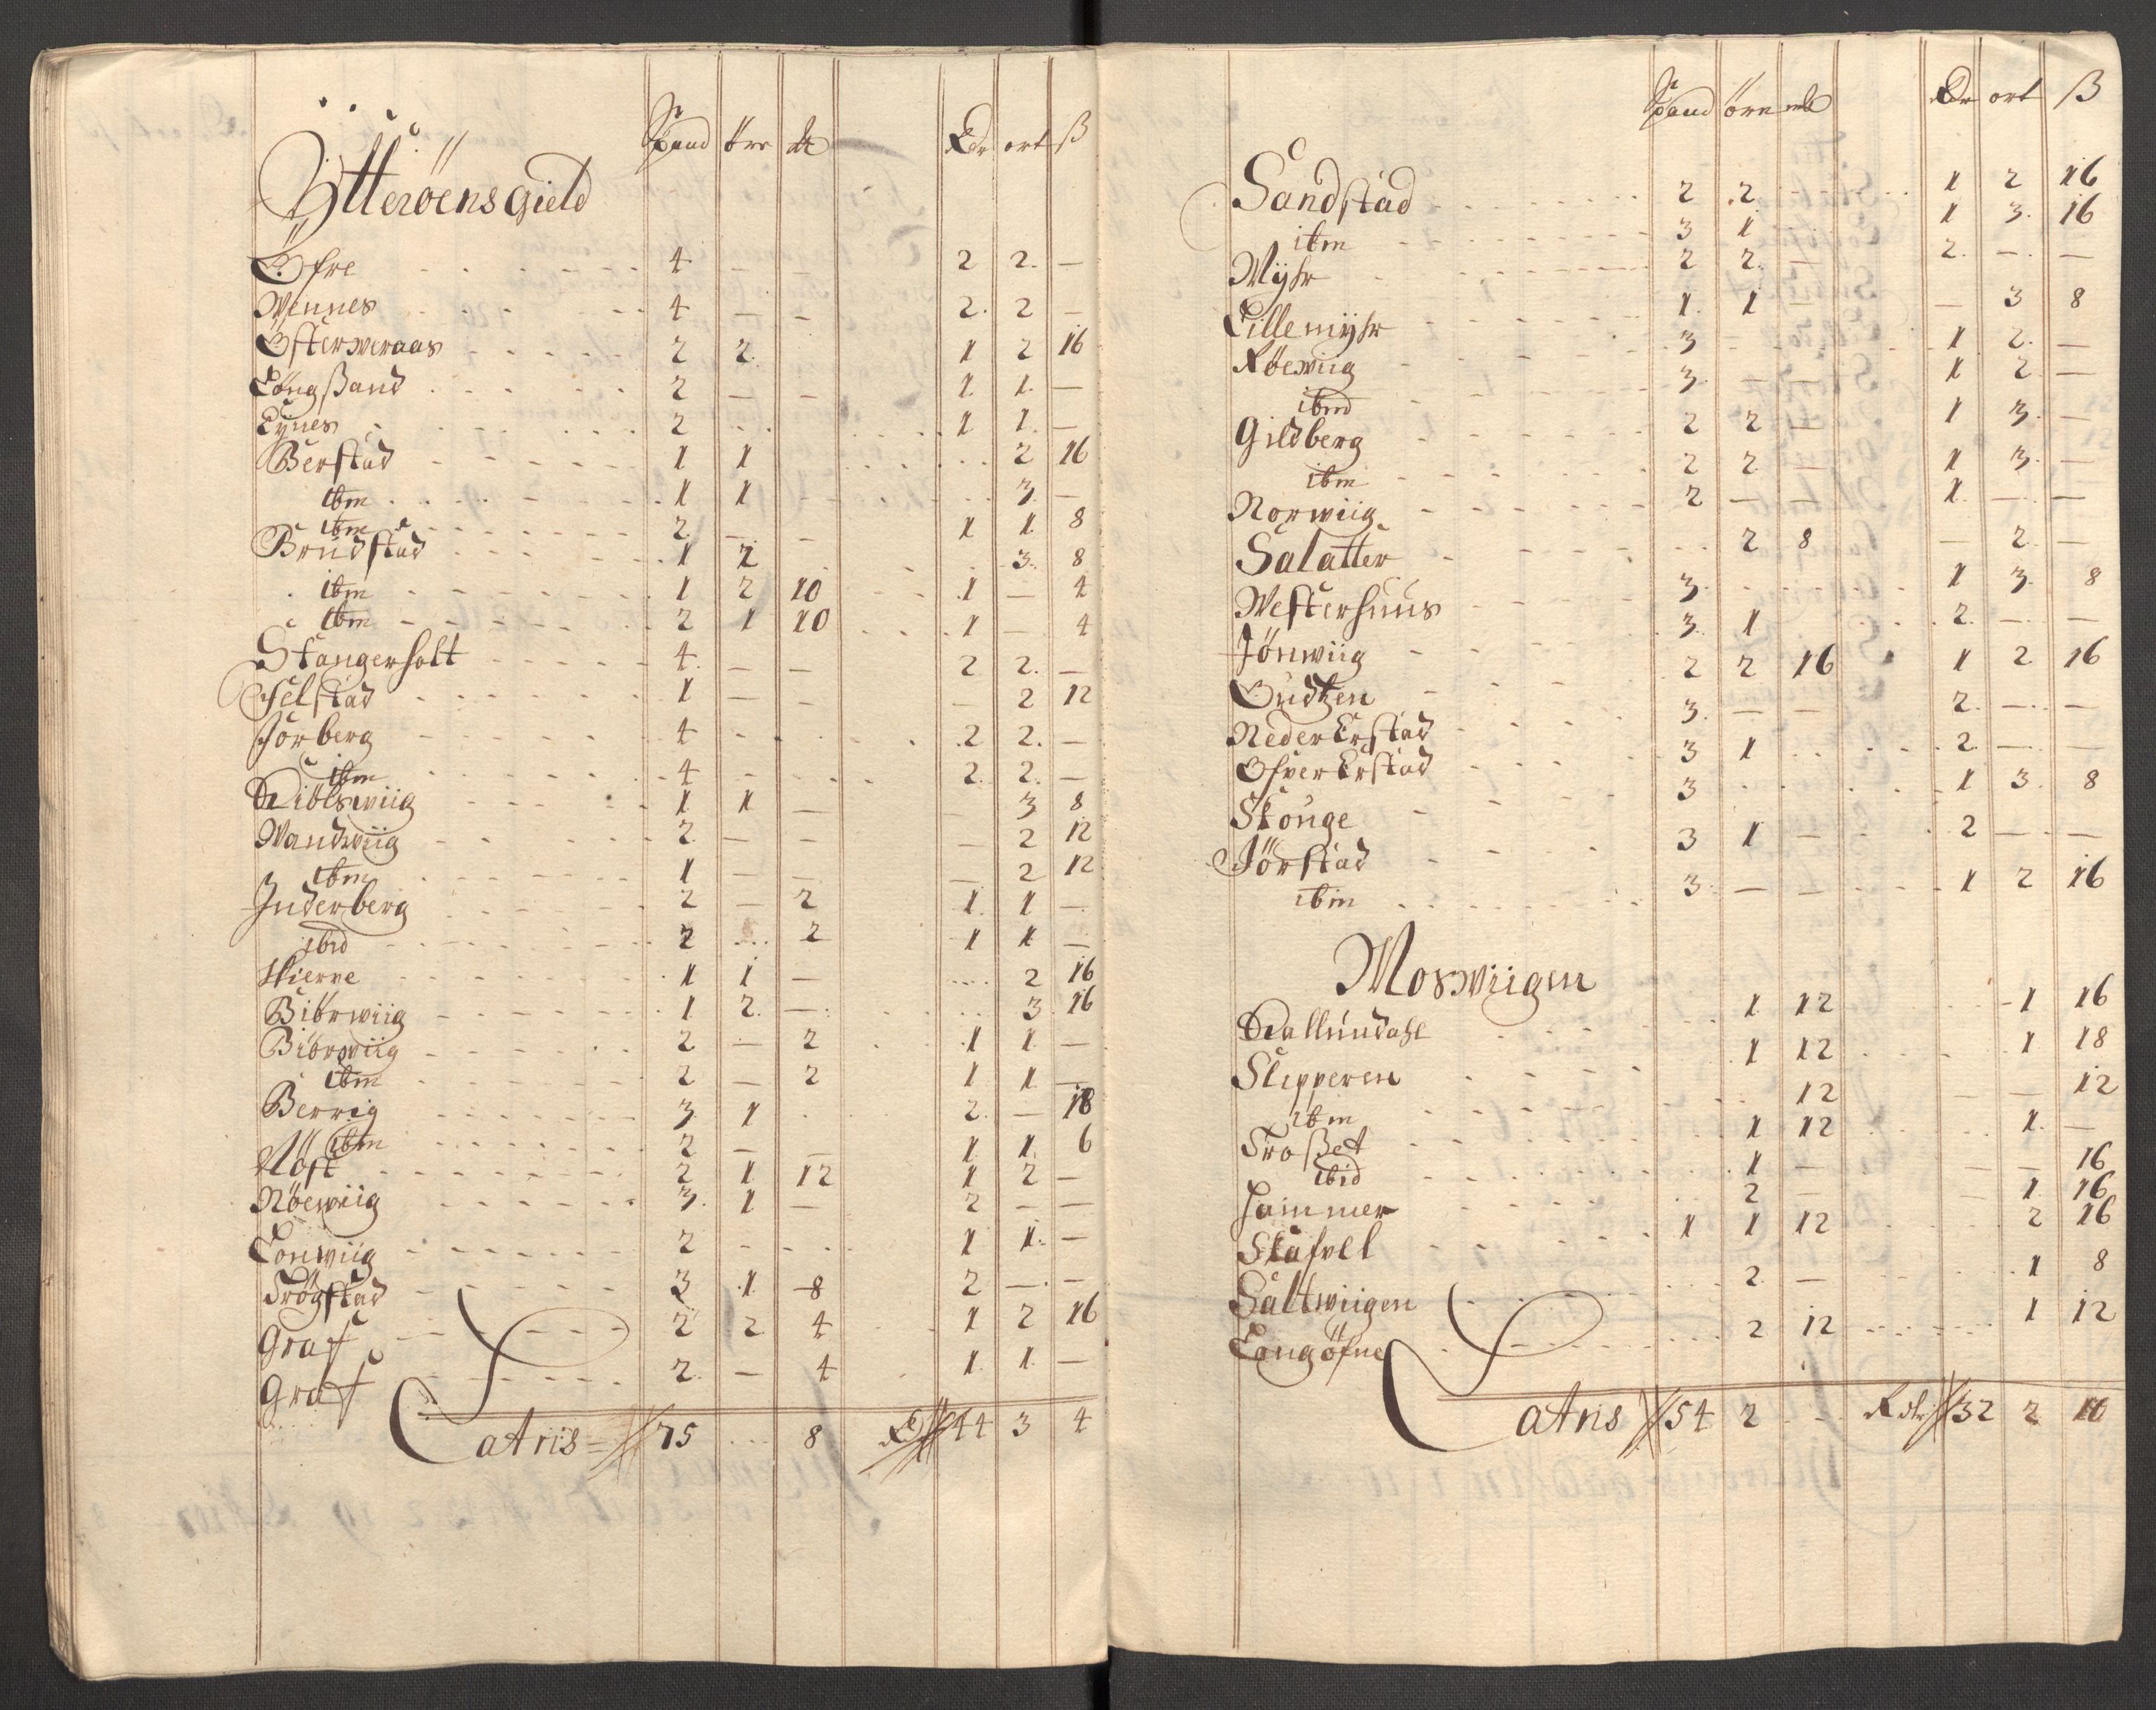 Spand öre ℔ Rdr ort ß
Ytterøens gield
Øfre 4 — — 2 2 —
Wennes 4 — — 2 2 —
Østerweraas 2 2 1 2 16
Långßand 2 — — 1 1 —
Lynes 2 1 1 —
Berstad 1 1 2 16
ibm 1 1 3 —
ibm 2 — — 1 1 8
Brudstad 1 2 3 8
ibm 1 2 10 1 — 4
ibm 2 1 10 1 — 4
Stangerholt 4 — — 2 2 —
Felstad 1 — — — 2 12
Forberg 4 2 2 —
ibm 4 2 2 —
Diölswiig 1 1 — — 3 8
Wandwiig 2 — — — 2 12
ibm 1 — — — 2 12
Inderberg 2 — 2 1 1 —
ibid 2 2 1 1 —
Skierve 1 1 — 2 16
Biörwiig 1 2 — 3 16
Biörwiig 2 — 2 1 1 —
ibm 2 — 2 1 1 —
Berrig 3 1 2 — 18
ibm 2 — — 1 1 6
Nöst 2 1 12 1 2 —
Nöewiig 3 1 — 2 — —
Lonwiig 2 1 1 —
Trögstad 3 1 8 2 — —
Graf 2 2 4 1 2 16
Graf 2 — 4 1 1 —
Latris 75 8 Rd 44 3 4
Spand öre ℔ Rdr ort ß
Sandstad 2 2 1 2 16
ibm 3 1 1 3 16
Myhr 2 2 — 2 — —
Lillemyhr 1 1 — — 3 8
Röewiig 3 — 1 2 —
ibid 3 — — 1 2 —
Gildberg 2 2 — 1 3 —
ibm 2 2 — 1 3 —
Norwiig 2 — — 1 — —
Salatter 2 8 — 2 —
Westerhuus 3 1 3 8
Jönwiig 3 1 2 — —
Gudtzen 2 2 16 1 2 16
Neder Erstad 3 — — 2 — —
Ofver Erstad 3 1 2 — —
Stouge 3 1 3 8
Jörstad 3 1 — 2 — —
ibm 3 — — 1 2 16
Moswiigen
Dallundahl 1 12 1 16
Slipperen 1 12 1 18
ibm 12 — — 12
Troßet 1 12 1 —
ibid 1 — — — 16
Hammer 2 — — 1 16
Stafvel 1 1 12 2 16
Saltwiigen 2 — 1 8
Langöfne 2 12 1 12
Latris 54 2 Rdr 32 2 10